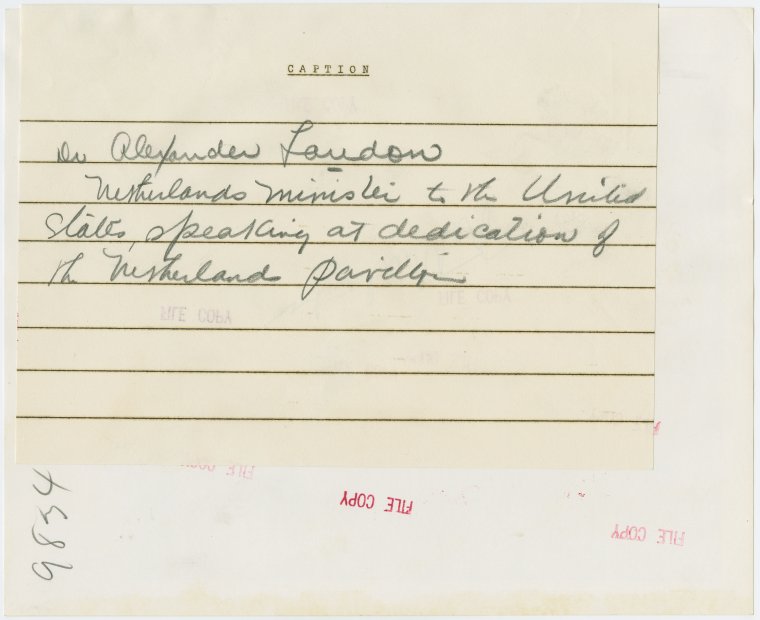 CAPTION
Dr Alexander Loudon
Netherlands minister to the United
States, speaking at dedication of
the Netherland Pavillion
FILE COPY
FILE COPY
FILE COPY
FILE COPY
FILE COPY
9834